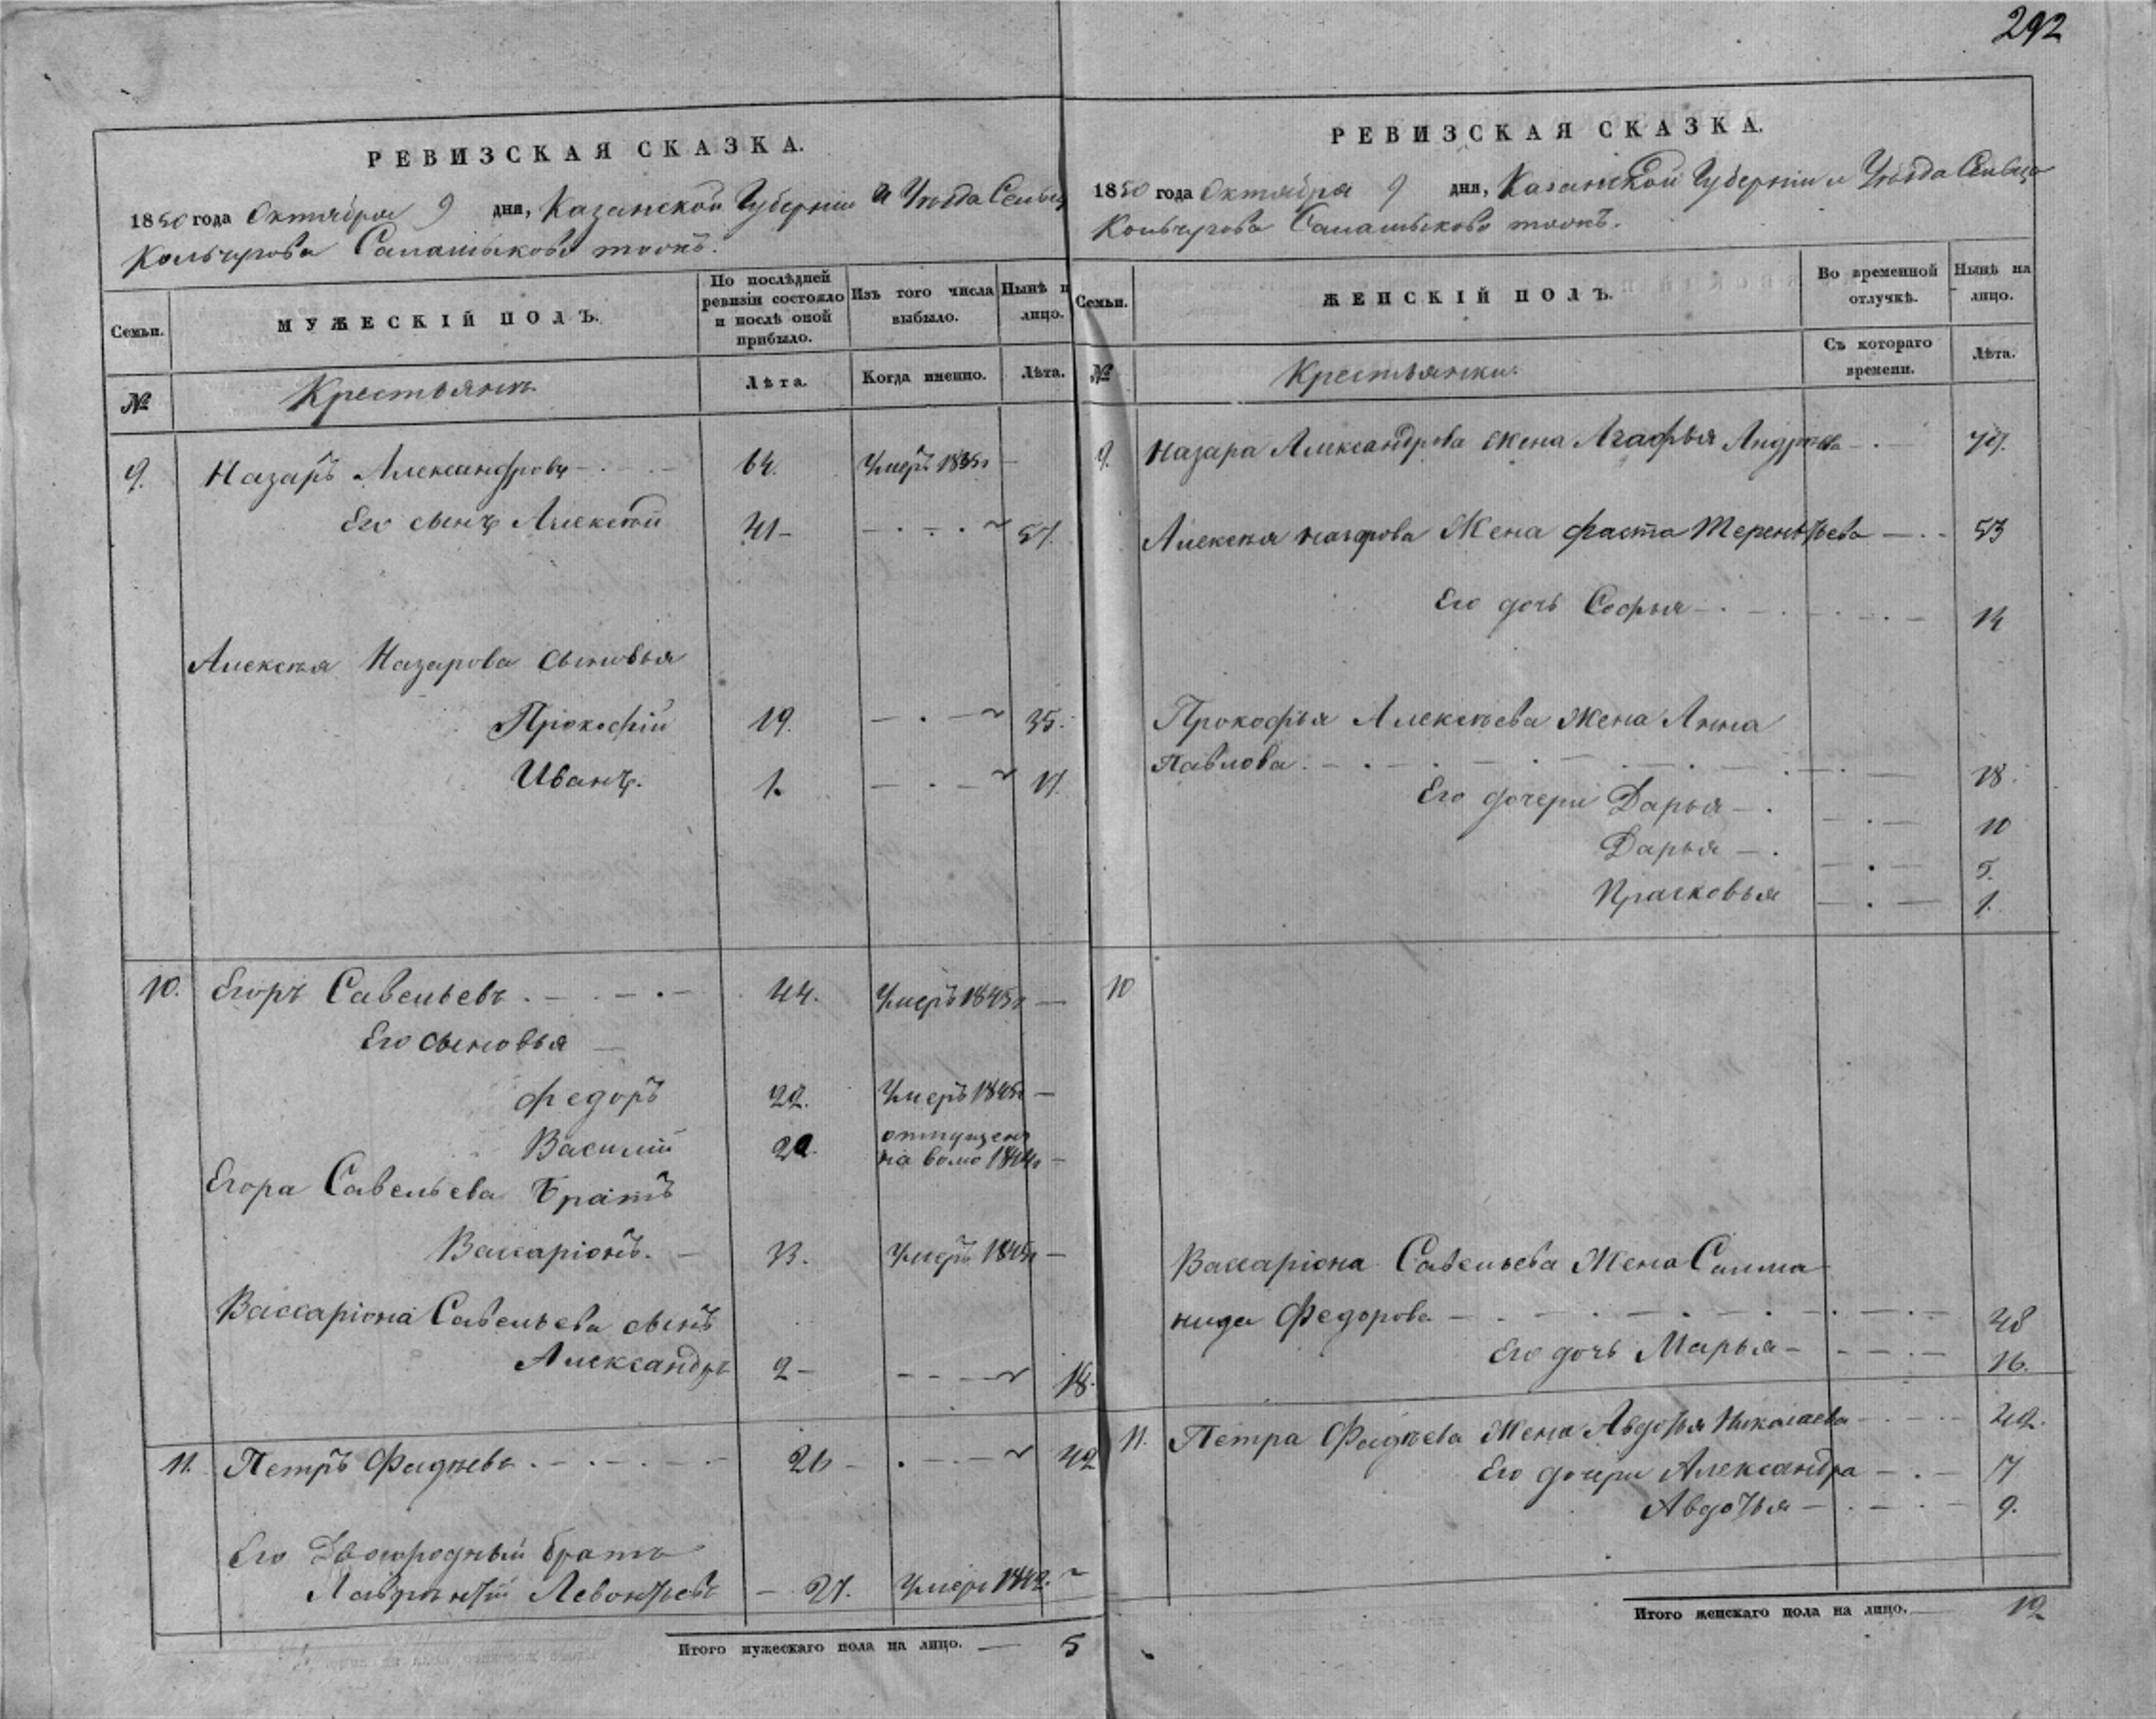 292
РЕВИЗСКАЯ СКАЗКА.
1850 года Октября 9 дня, Казанской Губерніи и Уѣзда Сельца
Кольчугова Салашыково тожъ.
Семьи.
МУЖЕСКІЙ ПОЛЪ.
По послѣдней
ревизіи состояло
и послѣ оной
прибыло.
Изъ того числа
выбыло.
Нынѣ н
лицо.
№
Крестьянъ
Лѣта.
Когда именно.
Лѣта.
9. Назаръ Александровъ 64. Умеръ
Его сынъ Алексѣй 41 57.
Алексѣя Назарова сыновья
Прокофій 19. 35.
Иванъ. 1. 17.
10. Егоръ Савельевъ 44. Умеръ 1845г
Его сыновья
Федоръ 22. Умеръ 1845г
Василій отпущенъ
на волю
Егора Савельева Братъ
Вассаріонъ. 33. Умеръ 1845г
Вассаріона Савельева сынъ
Александръ 2 18.
11. Петръ Фадѣевъ 26 42
Его Двоюродный братъ
Лаврентій Левонтьевъ 27. Умеръ
Итого мужескаго пола на лицо. 5
РЕВИЗСКАЯ СКАЗКА.
1850 года Октября 9 дня, Казанской Губерніи и Уѣзда Сельца
Кольчугова Салашыково тожъ.
Семьи.
ЖЕНСКІЙ ПОЛЪ.
Во временной
отлучкѣ.
Нынѣ на
лицо.
№
Крестьянки.
Съ котораго
времени.
Лѣта.
9. Назара Александрова жена Агафья
Алексѣя Назарова Жена Фаста Терентьева 53
Его дочь Софья 14
Прокофья Алексѣева Жена Анна
Павлова.
Его дочери Дарья 10
Дарья 5.
Прасковья 1.
10
Вассаріона Савельева Жена Салма
нида Федорова 48
Его дочь Марья 16.
11. Петра Фадѣева Жена Авдотья Николаева 42.
Его дочери Александра 17
Авдотья 9.
Итого женскаго пола на лицо. 12